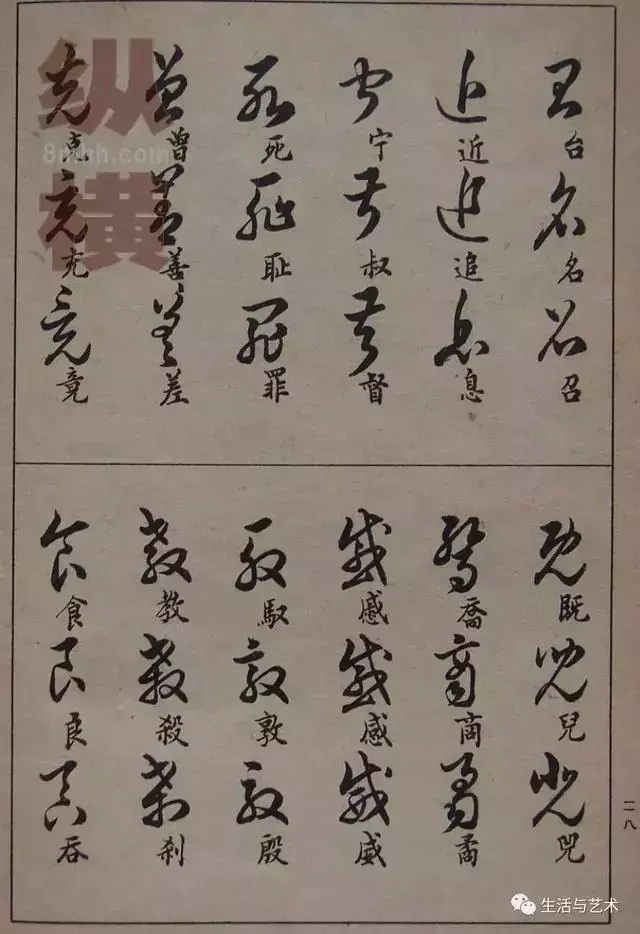 台 名 召
近 追 息
宁 叔 督
死 耻 罪
曾 善 差
克 充 竟
既 兒
喬 商 矞
慼 感 威
馭 敦 殷
教 殺 刹
食 良 吞
二八
纵横
8mhh.com
生活与艺术